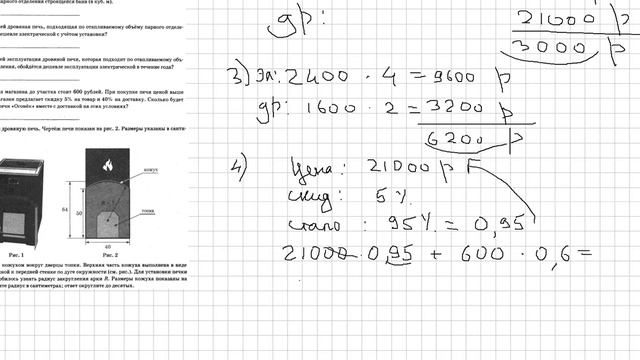 парного отделения строящейся бани (в куб. м).
ей дровяная печь, подходящая по отапливаемому объёму парного отделе-
дешевле электрической с учётом установки?
ей эксплуатация дровяной печи, которая подходит по отапливаемому объ-
еления, обойдётся дешевле эксплуатации электрической в течение года?
з магазина до участка стоит 600 рублей. При покупке печи ценой выше
агазин предлагает скидку 5% на товар и 40% на доставку. Сколько будет
чи «Огонёк» вместе с доставкой на этих условиях?
дровяную печь. Чертёж печи показан на рис. 2. Размеры указаны в санти-
кожух
топка
64
50
R
40
Рис. 1
Рис. 2
кожухом вокруг дверцы топки. Верхняя часть кожуха выполнена в виде
ной к передней стенке по дуге окружности (см. рис.). Для установки печки
обилось узнать радиус закругления арки R. Размеры кожуха показаны на
те радиус в сантиметрах; ответ округлите до десятых.
др:
21000 р
3000 р
3) эл: 2400 · 4 = 9600 р
др: 1600 · 2 = 3200 р
6200 р
4) Цена: 21000 р
скид: 5 %
стало: 95% = 0,95
21000 · 0,95 + 600 · 0,6 =